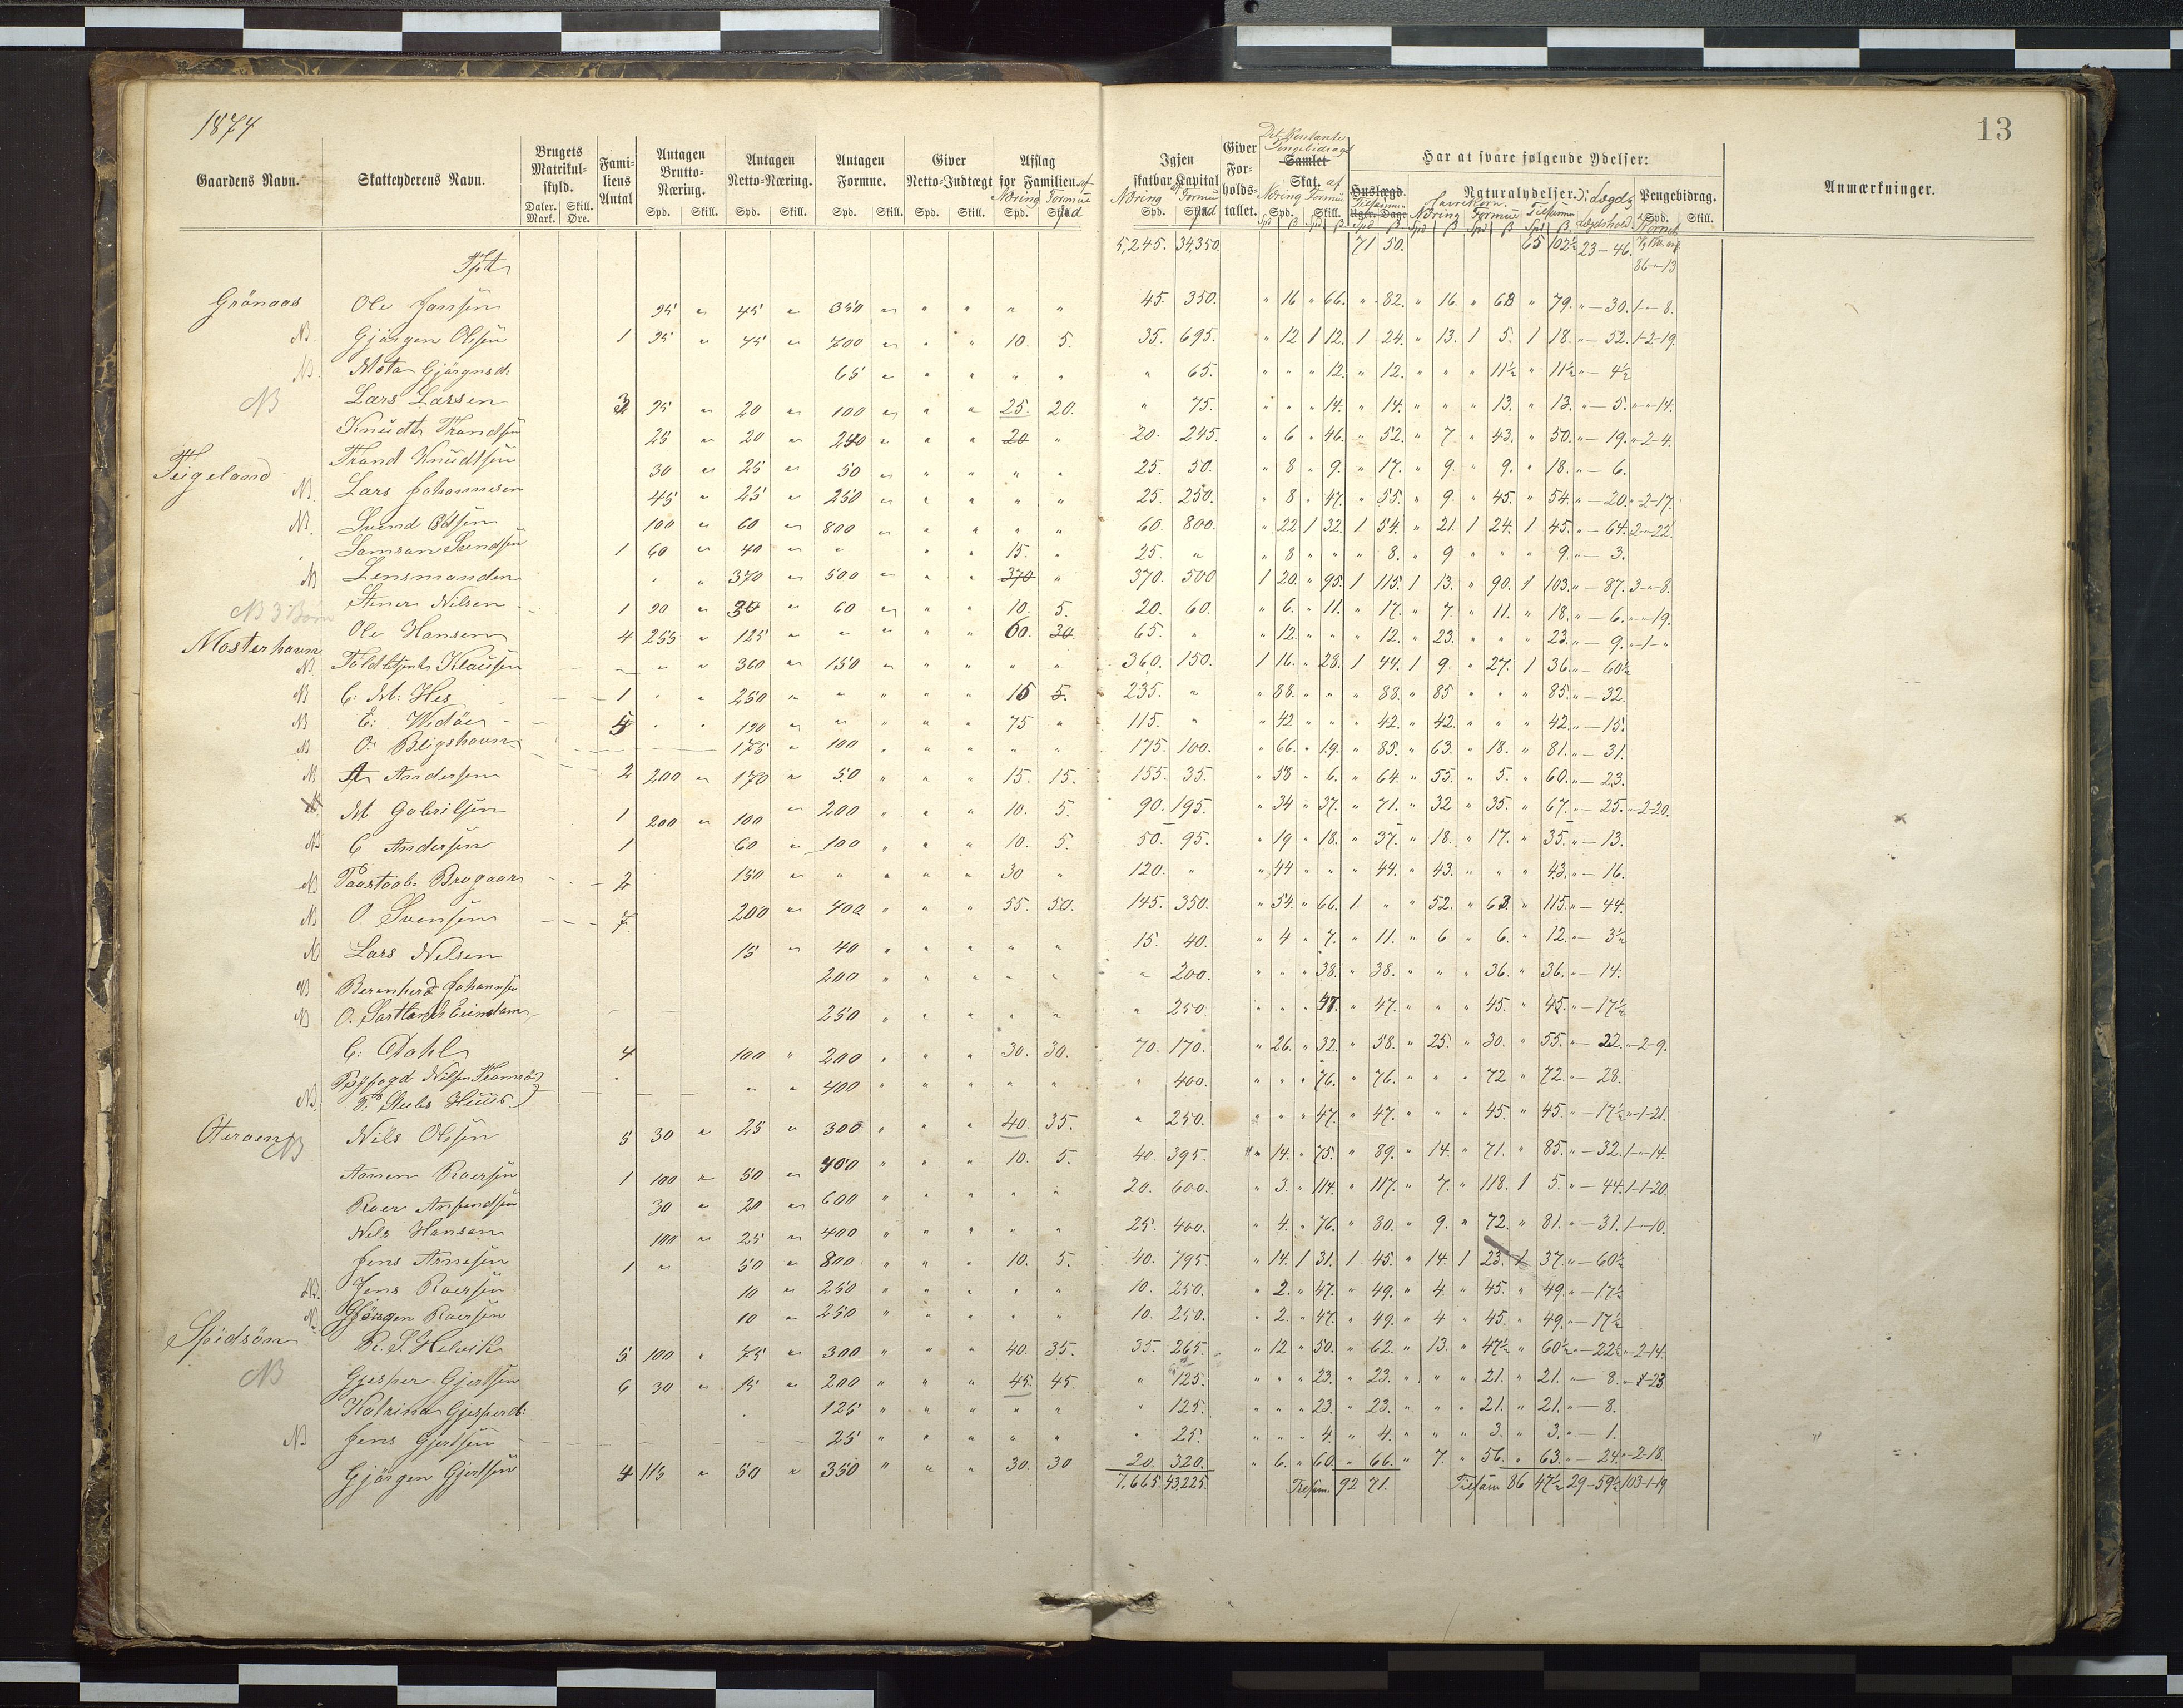 1874
13
Gaardens Navn. Skatteyderens Navn. Brugets Matrikulskyld. Familiens Antal Antagen Brutto-Næring. Antagen Netto-Næring. Antagen Formue. Giver Netto-Indtægt Afslag for Familien af
Daler. Mark. Skill. Øre. Spd. Skill. Spd. Skill. Spd. Skill. Spd. Skill. Næring Spd. Formue Spd
Igjen skatbar Kapital af Næring Spd. Formue Spd Giver Forholdstallet. Det Kontante Pengebidrag Samlet Skat. af Næring Formue Har at svare følgende Ydelser: Naturalydelser. Pengebidrag. Anmærkninger.
Tpt 5,245. 34,350 71 50. 65 102½ 23-46. 86-"-13
Grönaas Ole Jansen 95 " 45 " 350 " " " " " 45. 350. " 16 " 66. " 82. " 16. " 63 " 79. "-30. 1-"-8.
NB. Gjörgen Olsen 1 95 " 45 " 700 " " " 10. 5. 35. 695. " 12 1 12. 1 24. " 13. 1 5. 1 18. "-52. 1-2-19.
NB. Mata Gjörgensd: 65 " " " " " " 65. " " " 12. " 12. " " " 11½ " 11½ "-4½
NB Lars Larsen 3 95 " 20 " 100 " " " 25. 20. " 75. " " " 14. " 14. " " " 13. " 13. "-5. "-"-14.
Knudt Trandsen 25 " 20 " 240 " " " 20 " 20. 245. " 6 " 46. " 52. " 7 " 43. " 50. "-19. "-2-4.
Teigeland Trand Knudtsen 30 " 25 " 50 " " " " " 25. 50. " 8 " 9. " 17. " 9. " 9. " 18. "-6.
NB. Lars Johannesen 45 " 25 " 250 " " " " " 25. 250. " 8 " 47. " 55. " 9. " 45. " 54. "-20. "-2-17.
NB. Svend Olsen 100 " 60 " 800 " " " " " 60. 800. " 22 1 32. 1 54. " 21. 1 24. 1 45. "-64. 2-"-22.
Samson Svendsen 1 60 " 40 " " " " 15. " 25. " " 8 " " " 8. " 9 " " " 9. "-3.
NB Lensmanden " " 370 " 500 " " " 370 " 370. 500 1 20. " 95. 1 115. 1 13. " 90. 1 103. "-87. 3-"-8.
NB 3 Børn Stener Nilsen 1 90 " 30 " 60 " " " 10. 5. 20. 60. " 6. " 11. " 17. " 7. " 11. " 18. "-6. "-"-19.
Mosterhavn Ole Hansen 4 255 " 125 " " " " " 60. 30 65. " " 12. " " " 12. " 23. " " " 23. "-9. "-1-"
NB Toldbtjent Klausen " " 360 " 150 " " " " " 360. 150. 1 16. " 28. 1 44. 1 9. " 27. 1 36. "-60½
NB C: M: Hes 1 " " 250 " " " " " 15 5. 235. " " 88. " " " 88. " 85 " " " 85. "-32.
NB E: Wedöe 5 " " 190 " " " " " 75 " 115. " " 42 " " " 42. " 42. " " " 42. "-15.
NB O. Bligshavn 175 " 100 " " " " " 175. 100. " 66. " 19. " 85. " 63. " 18. " 81. "-31.
NB A. Andersen 2 200 " 170 " 50 " " " 15. 15. 155. 35. " 58 " 6. " 64. " 55. " 5. " 60. "-23.
M Gabrilsen 1 200 " 100 " 200 " " " 10. 5. 90. 195. " 34 " 37. " 71. " 32 " 35. " 67. "-25. "-2-20.
NB C Andersen 1 60 " 100 " " " 10. 5. 50. 95. " 19 " 18. " 37. " 18. " 17. " 35. "-13.
NB Brogaar 2 150 " " " " " 30 " 120. " " 44 " " " 44. " 43. " " " 43. "-16.
NB O. Svensen 7 200 " 400 " " " 55. 50. 145. 350. " 54. " 66. 1. " " 52. " 63. " 115. "-44.
NB Lars Nelsen 15 " 40 " " " " " 15. 40. " 4 " 7. " 11. " 6 " 6. " 12. "-3½
NB Berenherd Johannesen 200 " " " " " " 200. " " " 38. " 38. " " " 36. " 36. "-14.
NB O. Eiendam 250 " " " " " " 250. " " " 47. " 47. " " " 45. " 45. "-17½
C: Dahl 4 100 " 200 " " " 30. 30. 70. 170. " 26. " 32. " 58. " 25. " 30. " 55. "-22. "-2-9.
Byfogd Nilsen Tromsö 400 " " " " " " 400. " " " 76. " 76. " " " 72 " 72. "-28.
NB. T. Stubs Huus
" 250. " " " 47. " 47. " " " 45. " 45. "-17½ "-1-21.
Oteroen NB Nils Olsen 5 30 " 25 " 300 " " " 40. 35.
Aamen Roersen 1 100 " 50 " 400 " " " 10. 5. 40. 395. " 14. " 75. " 89. " 14. " 71. " 85. "-32. 1-"-14.
Roer Anfendsen 30 " 20 " 600 " " " " " 20. 600. " 3. " 114. " 117. " 7. " 118. 1 5. "-44. 1-1-20.
Nils Hansen 100 " 25 " 400 " " " " " 25. 400. " 4. " 76. " 80. " 9. " 72. " 81. "-31. 1-"-10.
Jens Arnesen 1 " 50 " 800 " " " 10. 5. 40. 795. " 14. 1 31. 1 45. " 14. 1 23. 1 37. "-60½
NB. Jens Roersen 10 " 250 " " " " " 10. 250. " 2. " 47. " 49. " 4. " 45. " 49. "-17½
NB. Gjörgen Roersen 10 " 250 " " " " " 10. 250. " 2. " 47. " 49. " 4 " 45. " 49. "-17½
Spidsön R. S. Helvik 5 100 " 75 " 300 " " " 40. 35. 35. 265. " 12 " 50. " 62. " 13. " 47½ " 60½ "-22½ "-2-14.
NB Gjesper Gjertsen 6 30 " 15 " 200 " " " 45. 45. " 125. " " " 23. " 23. " " " 21. " 21. "-8. "-1-23
Katrina Gjesperd: 125 " " " " " " 125. " " " 23. " 23. " " " 21. " 21. "-8.
NB Jens Gjertsen 25 " " " " " " 25. " " " 4. " 4. " " " 3. " 3. "-1.
Gjörgen Gjertsen 4 115 " 50 " 350 " " " 30. 30 20. 320. " 6. " 60. " 66. " 7. " 56. " 63. "-24. "-2-18.
7,665. 43,225. Tilsam. 92 71. Tilsam 86 47½ 29-59½ 103-1-19